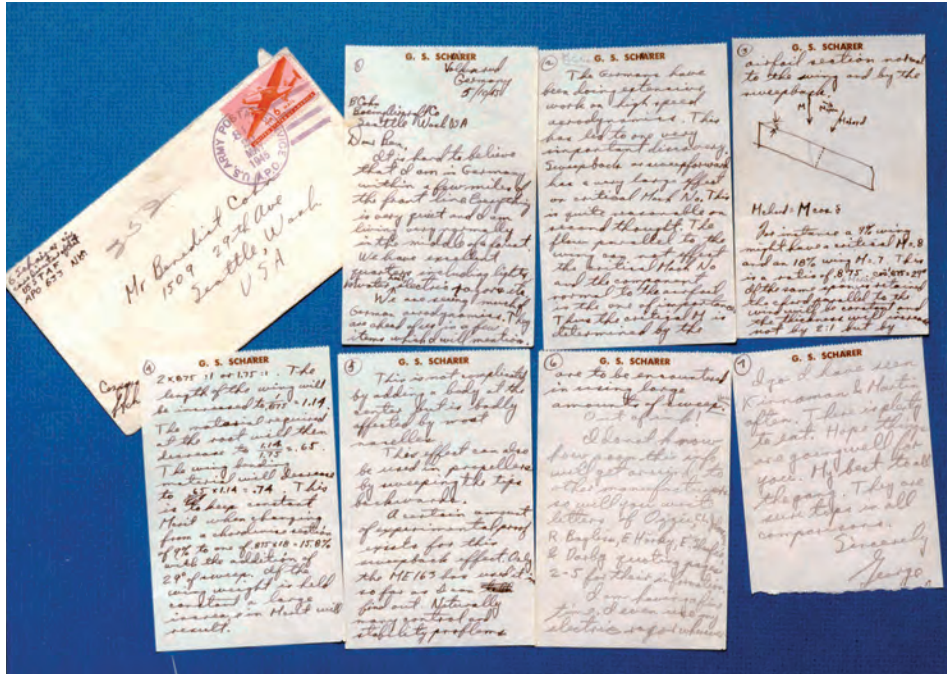 U.S. ARMY POSTAL SERVICE
A.P.O.
MAY
1945
Mr Benedict Cohn
1509 29th Ave
Seattle, Wash
USA
G Schairer
APO 633 NYK
①
G. S. SCHAIRER
Volkenrode
Germany
5/10/45
B Cohn
Boeing Aircraft Co
Seattle Wash USA
Dear Ben,
It is hard to believe
that I am in Germany
within a few miles of
the front line. Everything
is very quiet and I am
living very normally
in the middle of a forest.
We have excellent
quarters including lights,
hot water
We are seeing much of
German aerodynamics. They
are ahead of us in a few
items which I will mention.
②
G. S. SCHAIRER
The Germans have
been doing extensive
work on high speed
aerodynamics. This
has led to one very
important discovery.
Sweepback or sweepforward
has a very large effect
on critical Mach No. This
is quite reasonable on
second thought. The
flow parallel to the
wing can not affect
the critical Mach No
and the component
normal to the airfoil
is the one of importance.
Thus the critical M is
determined by the
③
G. S. SCHAIRER
airfoil section normal
to the wing and by the
sweepback.
M
For instance a 9% wing
might have a critical M .8
and an 18% wing M .7. This
is a ratio of .875. cos⁻¹ .875 = 29°
If the same span is retained
the chord parallel to the
wind will be constant and
the thickness will increase
not by 2:1 but by
④
G. S. SCHAIRER
2 x .875 : 1 or 1.75 : 1. The
length of the wing will
be increased to 1/.875 = 1.14.
The material required
at the root will then
decrease to 1.14/1.75 = .65.
The wing bend.
material will decrease
to .65 x 1.14 = .74. This
is to keep constant
Mcrit when changing
from a chordwise section
of 9% to one of .875 x 18 = 15.8%
with the addition of
29° of sweep. If the
wing weight is held
constant a large
increase in Mcrit will
result.
⑤
G. S. SCHAIRER
This is not complicated
by adding a body at the
center but is badly
affected by most
nacelles.
This effect can also
be used in propellers
by sweeping the tips
backwards.
A certain amount
of experimental proof
exists for this
sweepback effect. Only
the ME 163 has used it
so far as I can
find out. Naturally
many control and
stability problems
⑥
G. S. SCHAIRER
are to be encountered
in using large
amounts of sweep.
I do not know
how soon this info
will get around to
other manufacturers
so will you write
letters to
& Darby quoting pages
2-5 for their information.
I am having a fine
time. I even use
electric razor wherever
⑦
G. S. SCHAIRER
I go. I have seen
Kinnaman & Martin
often. There is plenty
to eat. Hope things
are going well for
you. My best to all
the gang. They are
sure tops in all
comparisons.
Sincerely
George